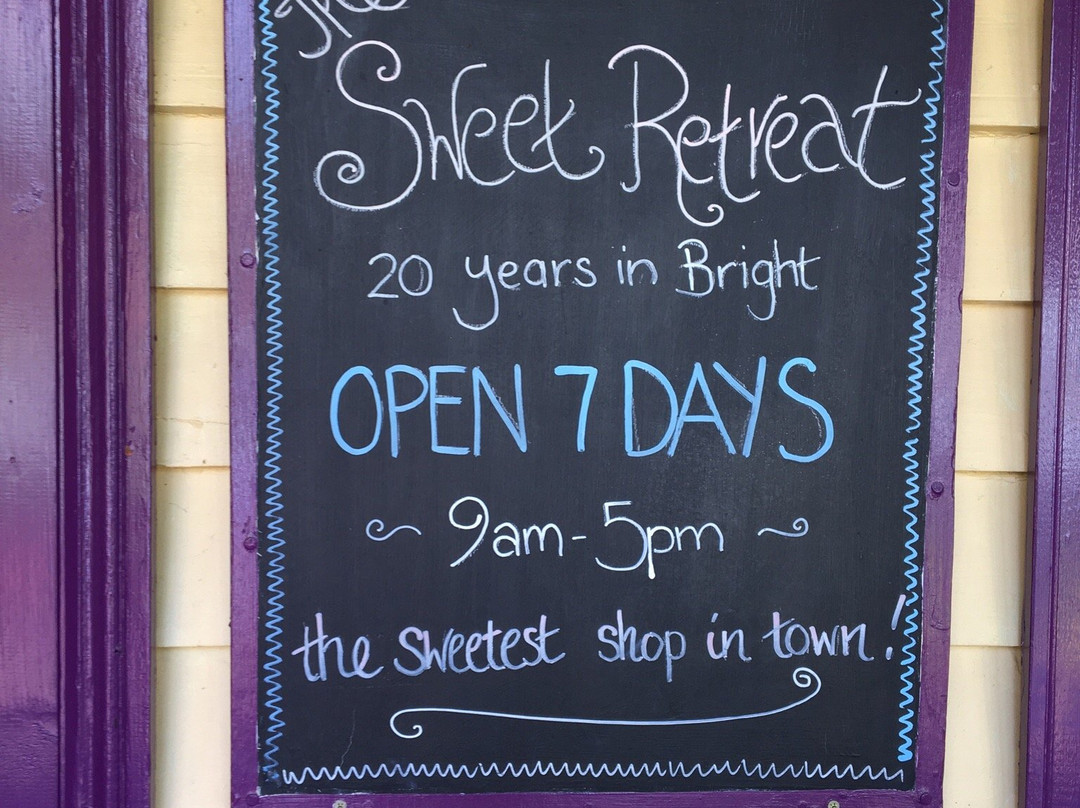 the
Sweet Retreat
20 years in Bright
OPEN 7 DAYS
9am-5pm
the sweetest shop in town!